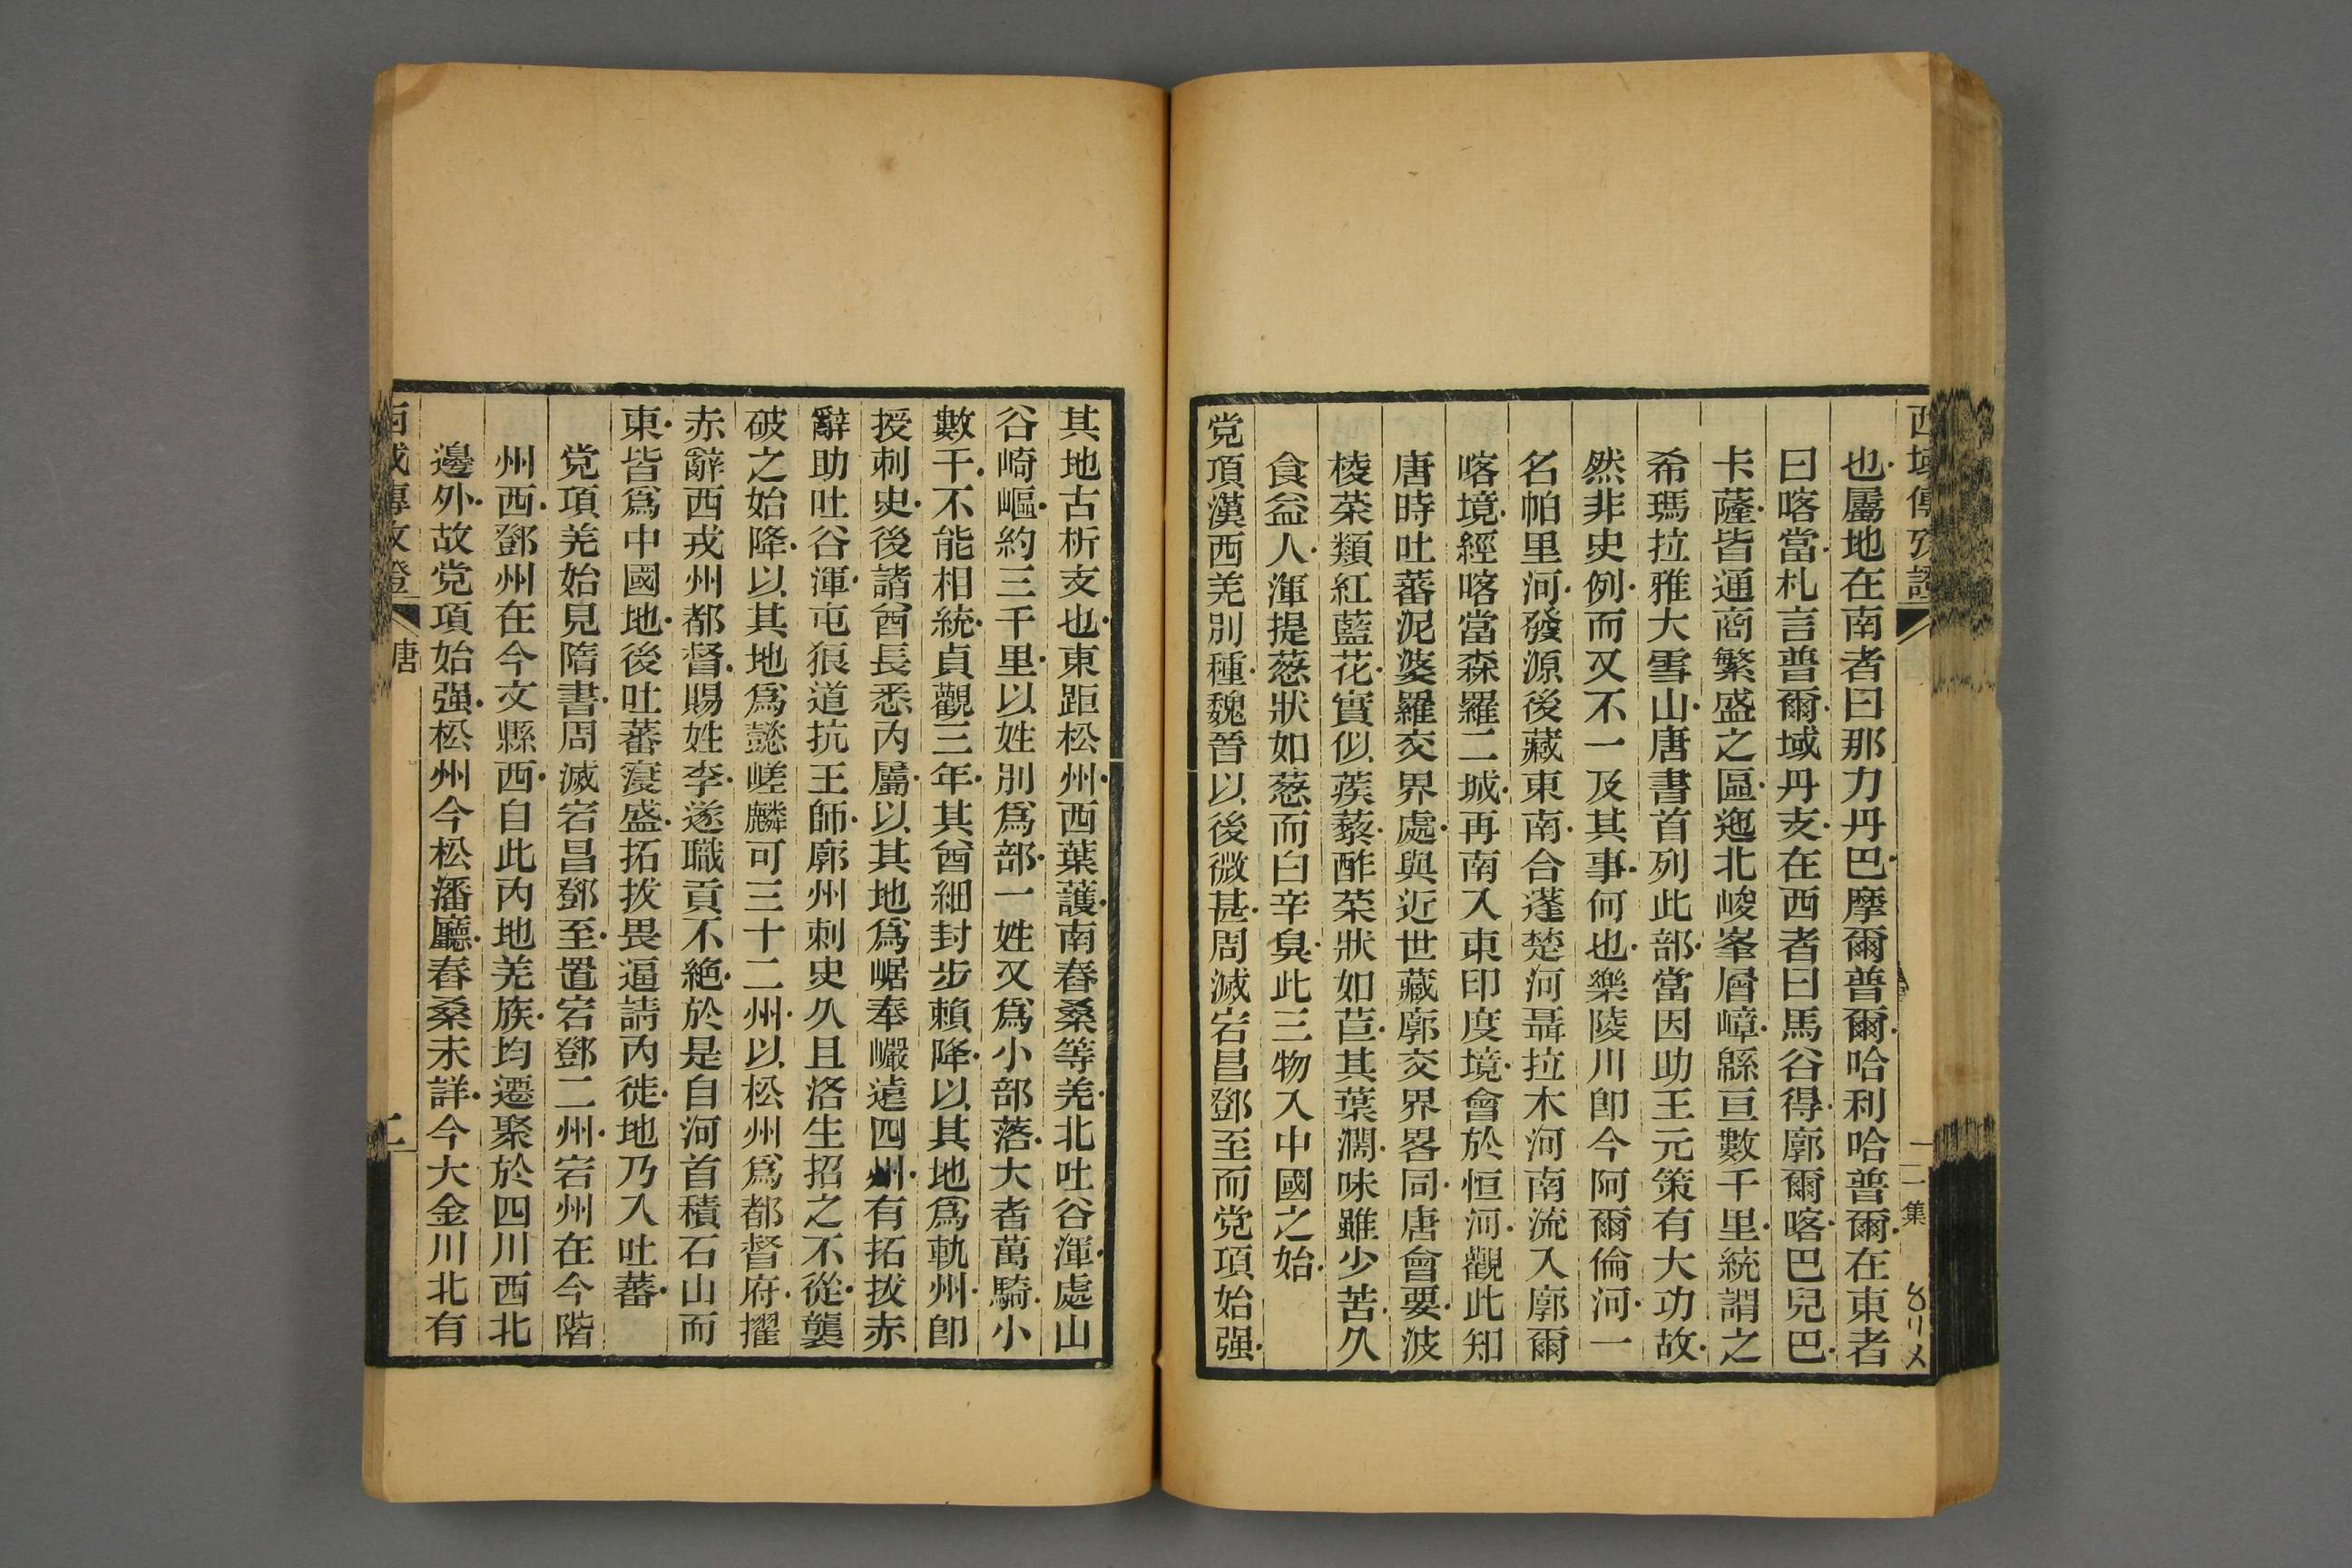 西域傳攷證
一二集
也屬地在南者曰那力丹巴摩爾普爾哈利哈普爾在東者
曰喀當札言普爾域丹支在西者曰馬谷得廓爾喀巴兒巴
卡薩皆通商繁盛之區迤北峻峯層嶂緜亘數千里統謂之
希瑪拉雅大雪山唐書首列此部當因助王元策有大功故
然非史例而又不一及其事何也樂陵川卽今阿爾倫河一
名帕里河發源後藏東南合蓬楚河聶拉木河南流入廓爾
喀境經喀當森羅二城再南入東印度境會於恒河觀此知
唐時吐蕃泥婆羅交界處與近世藏廓交界畧同唐會要波
棱菜類紅藍花實似蒺藜酢菜狀如苣其葉濶味雖少苦久
食益人渾提葱狀如葱而白辛臭此三物入中國之始
党項漢西羌別種魏晉以後微甚周滅宕昌鄧至而党項始强
其地古析支也東距松州西葉護南舂桑等羌北吐谷渾處山
谷崎嶇約三千里以姓別爲部一姓又爲小部落大者萬騎小
數千不能相統貞觀三年其酋細封步賴降以其地爲軌州卽
授刺史後諸酋長悉內屬以其地爲崌奉巖遠四州有拓拔赤
辭助吐谷渾屯狼道抗王師廓州刺史久且洛生招之不從襲
破之始降以其地爲懿嵯麟可三十二州以松州爲都督府擢
赤辭西戎州都督賜姓李遂職貢不絶於是自河首積石山而
東皆爲中國地後吐蕃寖盛拓拔畏逼請內徙地乃入吐蕃
党項羌始見隋書周滅宕昌鄧至置宕鄧二州宕州在今階
州西鄧州在今文縣西自此內地羌族均遷聚於四川西北
邊外故党項始强松州今松潘廳舂桑未詳今大金川北有
西域傳攷證
唐
二